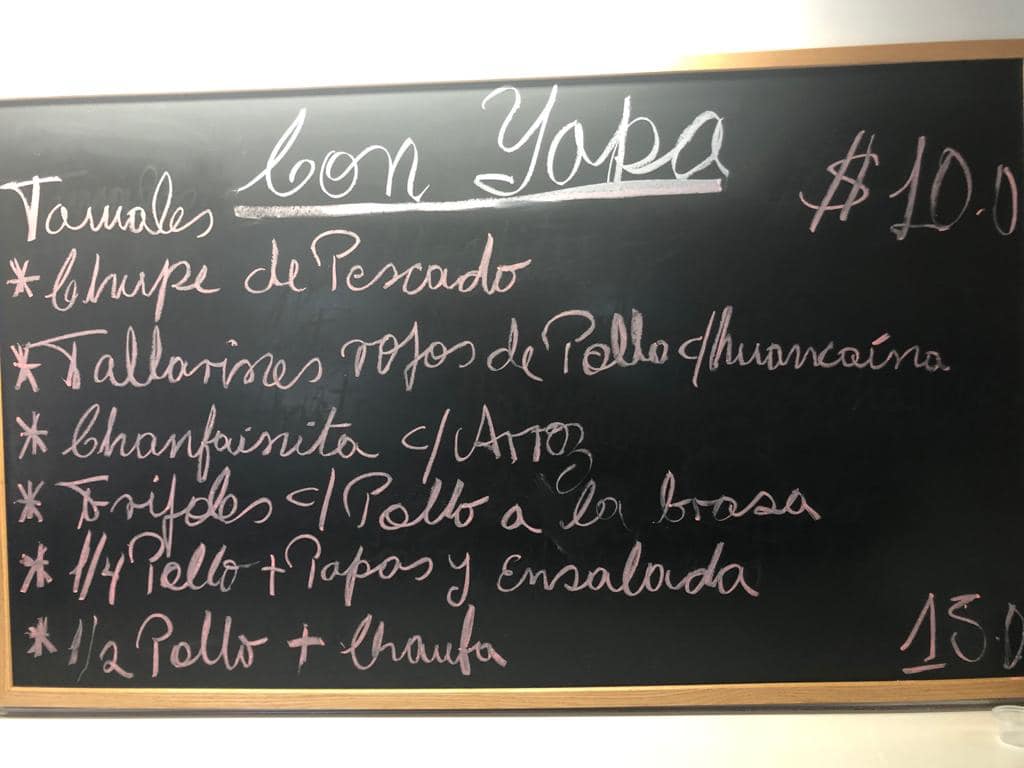 Con Yapa
$10.0
Tamales
* Chupe de Pescado
* Tallarines rojos de Pollo c/huancaína
* Chanfainita c/Arroz
* Frijoles c/Pollo a la brasa
* 1/4 Pollo + Papas y Ensalada
* 1/2 Pollo + Chaufa
15.0